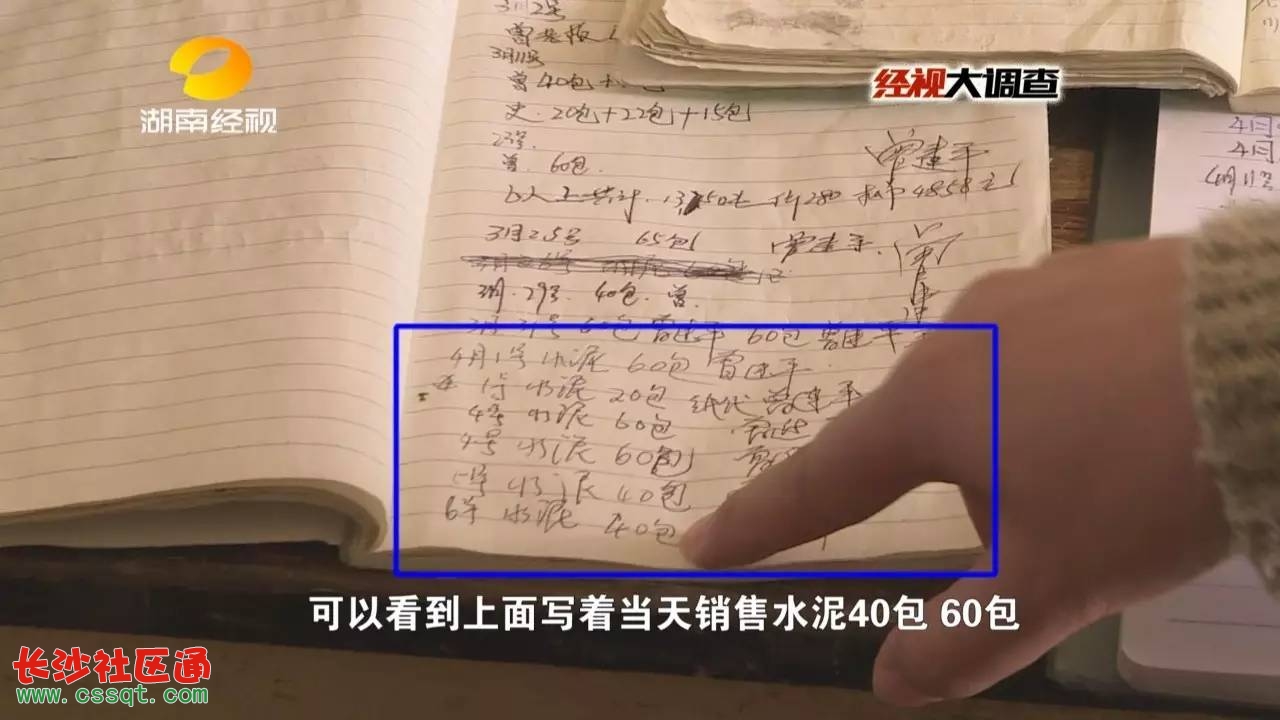 湖南经视
经视大调查
3月2号
3月11号
曾40包
史.20包+22包+15包
23号.
曾.60包.
曾建平
以上共计.
280
4858元
3月25号 65包 曾建平.
3月.29号.40包.曾.
3月31号60包曾建平 60包 曾建平
4月1号水泥 60包 曾建平.
1号 水泥 20包 纸代 曾建平
4号 水泥 60包
4号 水泥 60包
5号 水泥 40包
6号 水泥 40包
4月
4月
4月11号
可以看到上面写着当天销售水泥40包 60包
长沙社区通
www.cssqt.com